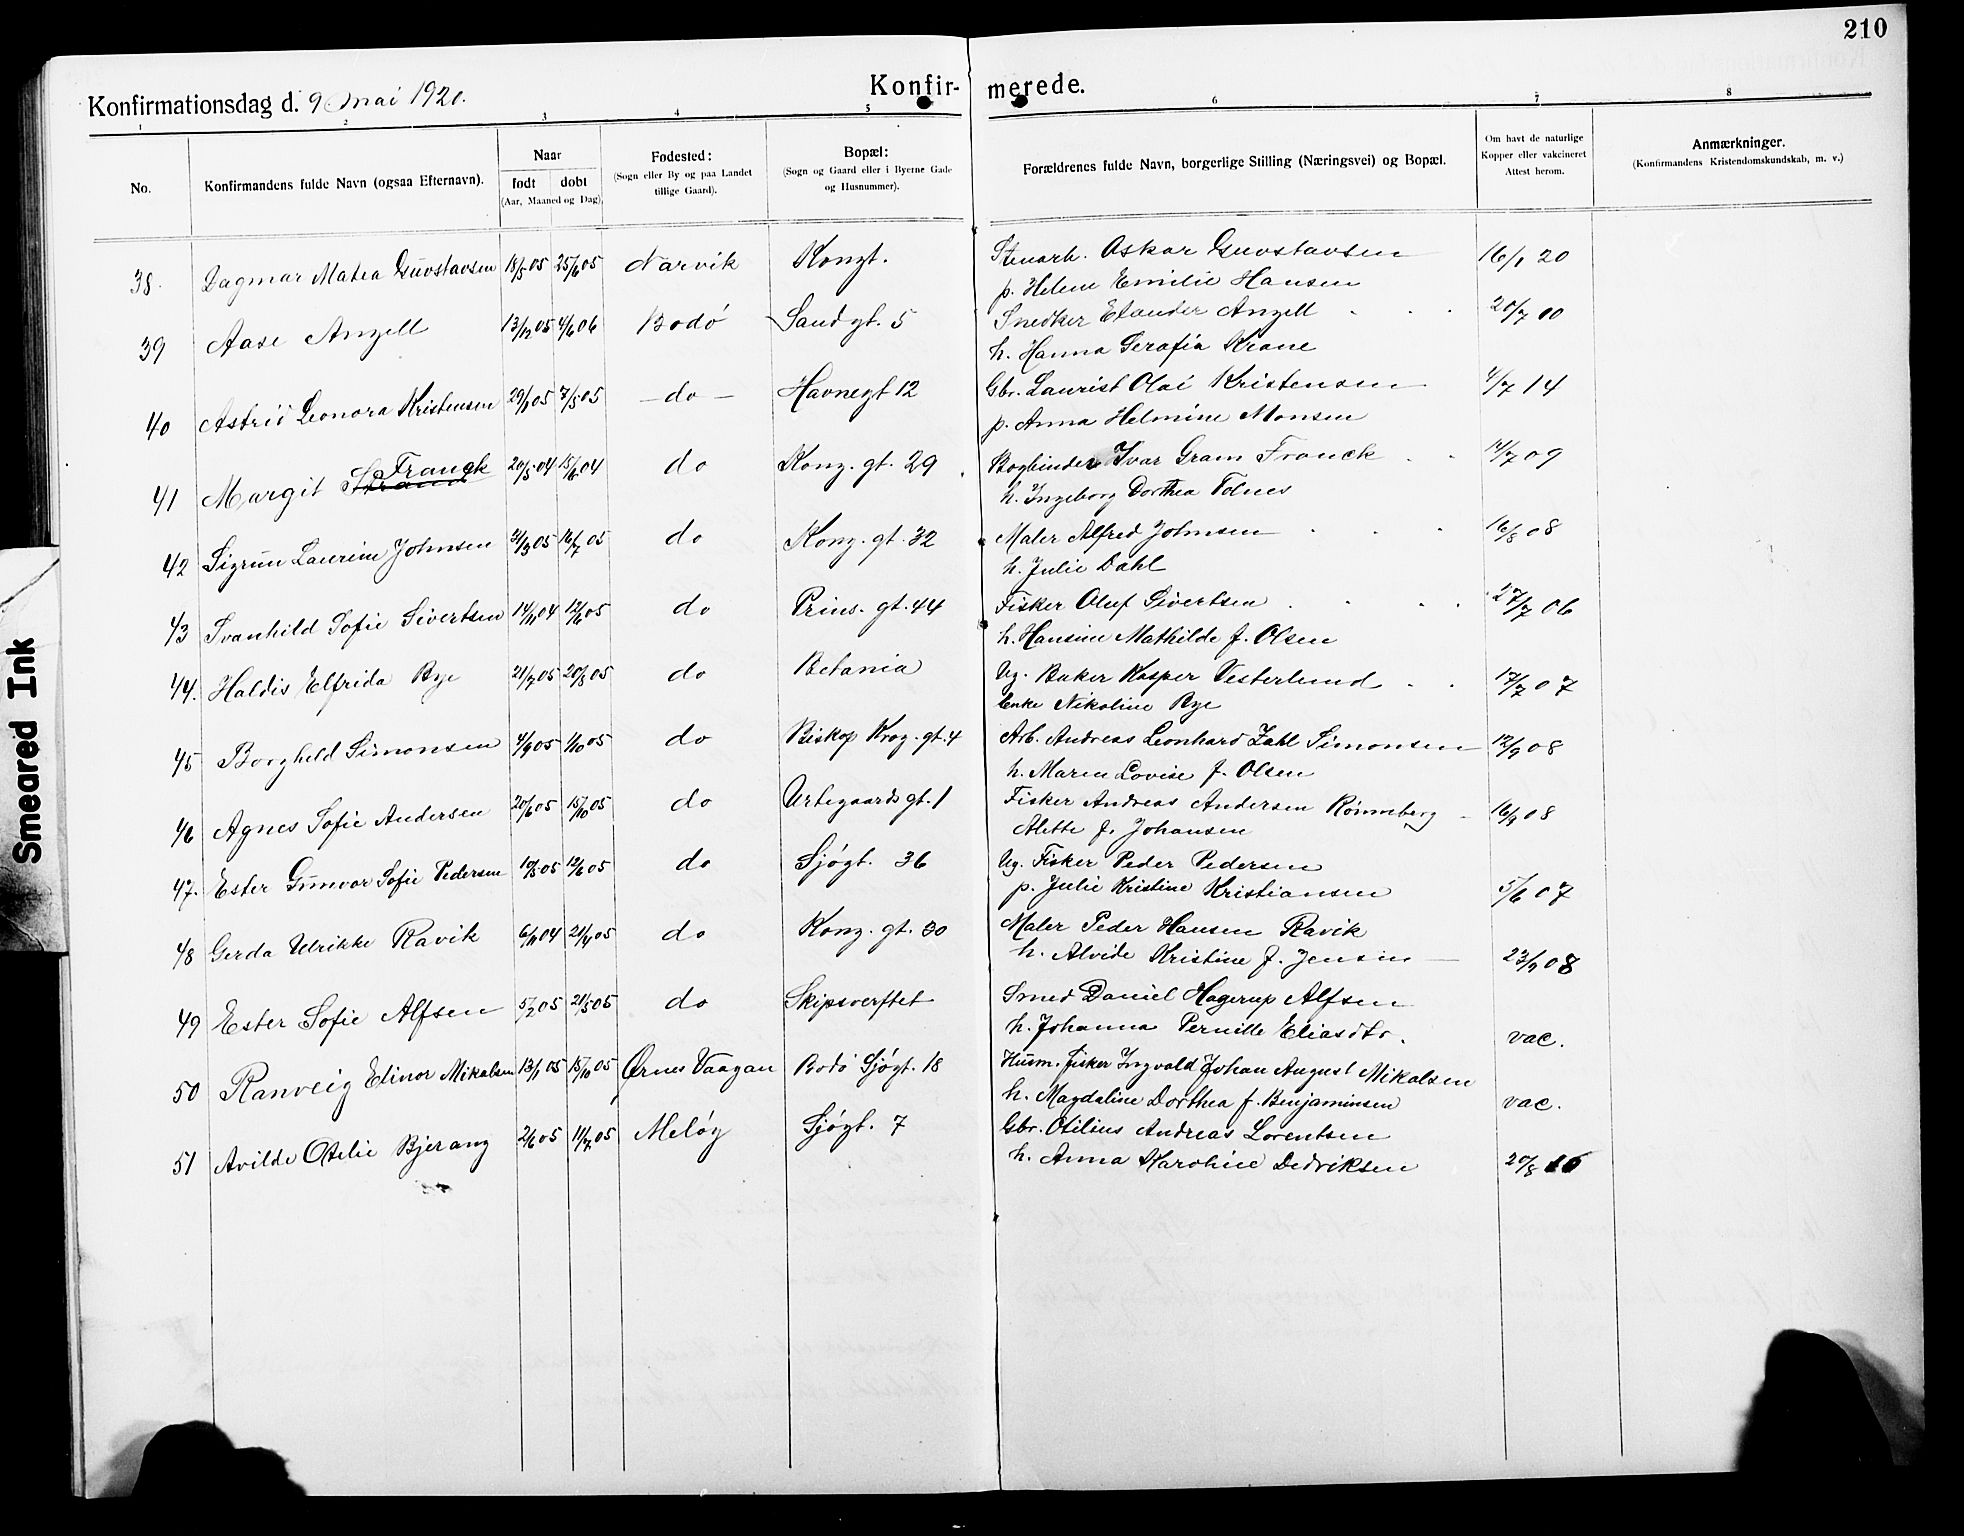 210
Konfirmationsdag d. 9 Mai 1920.
Konfir-
merede.
1 2 3 4 5 6 7 8
No.
Konfirmandens fulde Navn (ogsaa Efternavn).
Naar
født døbt
(Aar, Maaned og Dag).
Fødested:
(Sogn eller By og paa Landet
tillige Gaard).
Bopæl:
(Sogn og Gaard eller i Byerne Gade
og Husnummer).
Forældrenes fulde Navn, borgerlige Stilling (Næringsvei) og Bopæl.
Om havt de naturlige
Kopper eller vakcineret
Attest herom.
Anmærkninger.
(Konfirmandens Kristendomskundskab, m. v.)
38. Dagmar Matea Guvstavsen 18/5 05 25/6 05 Narvik Kongt. Stenarb. Oskar Guvstavsen 16/1 20
p. Helene Emilie Hansen
39 Aase Angell 13/12 05 4/6 06 Bodø Sandgt. 5 Snedker Elander Angell 20/7 10
h. Hanna Serafia Krane
40 Astrid Leonora Kristensen 29/1 05 7/5 05 — do — Havnegt 12 Gbr. Laurist Olai Kristensen 4/7 14
p. Anna Helmine Monsen
41 Margit Franck 20/5 04 15/8 04 do Kong. gt. 29 Bogbinder Ivar Gram Franck 14/7 09
h. Ingeborg Dorthea Tolnes
42 Sigrun Laurine Johnsen 31/3 05 16/7 05 do Kong. gt. 32 Maler Alfred Johnsen 16/8 08
h. Julie Dahl
43 Svanhild Sofie Sivertsen 14/11 04 12/6 05 do Prins. gt. 44 Fisker Oluf Sivertsen 27/7 06
h. Hansine Mathilde f. Olsen
44. Haldis Elfrida Bye 21/7 05 20/8 05 do Betania Ug. Baker Kasper Vesterlund 17/7 07
Enke Nikoline Bye
45 Borghild Simonsen 4/9 05 1/10 05 do Biskop Krog. gt. 4 Arb. Andreas Leonhard Zahl Simonsen 12/9 08
h. Maren Lovise f. Olsen
46 Agnes Sofie Andersen 20/6 05 15/10 05 do Urtegaards gt. 1 Fisker Andreas Andersen Rønneberg 16/9 08
Alette f. Johansen
47. Ester Gunvor Sofie Pedersen 10/5 05 12/6 05 do Sjøgt. 36 Ug. Fisker Peder Pedersen
p. Julie Kristine Kristiansen 5/6 07
48 Gerda Ulrikke Ravik 6/11 04 21/4 05 do Kong. gt. 30 Maler Peder Hansen Ravik
h. Alvide Kristine f. Jensen 23/9 08
49 Ester Sofie Alfsen 5/2 05 21/5 05 do Skipsverftet Smed Daniel Hagerup Alfsen
h. Johanna Pernille Eliasdtr. vac.
50 Ranveig Elinor Mikalsen 13/1 05 15/10 05 Ørnes Vaagan Bodø Sjøgt. 18 Husm. fisker Ingvald Johan August Mikalsen
h. Magdaline Dorthea f. Benjaminsen vac.
51 Avilde Otelie Bjerang 2/6 05 11/7 05 Meløy Sjøgt. 7 Gbr. Otilius Andreas Lorentsen
h. Anna Karoline Dedriksen 20/8 16
Smeared Ink